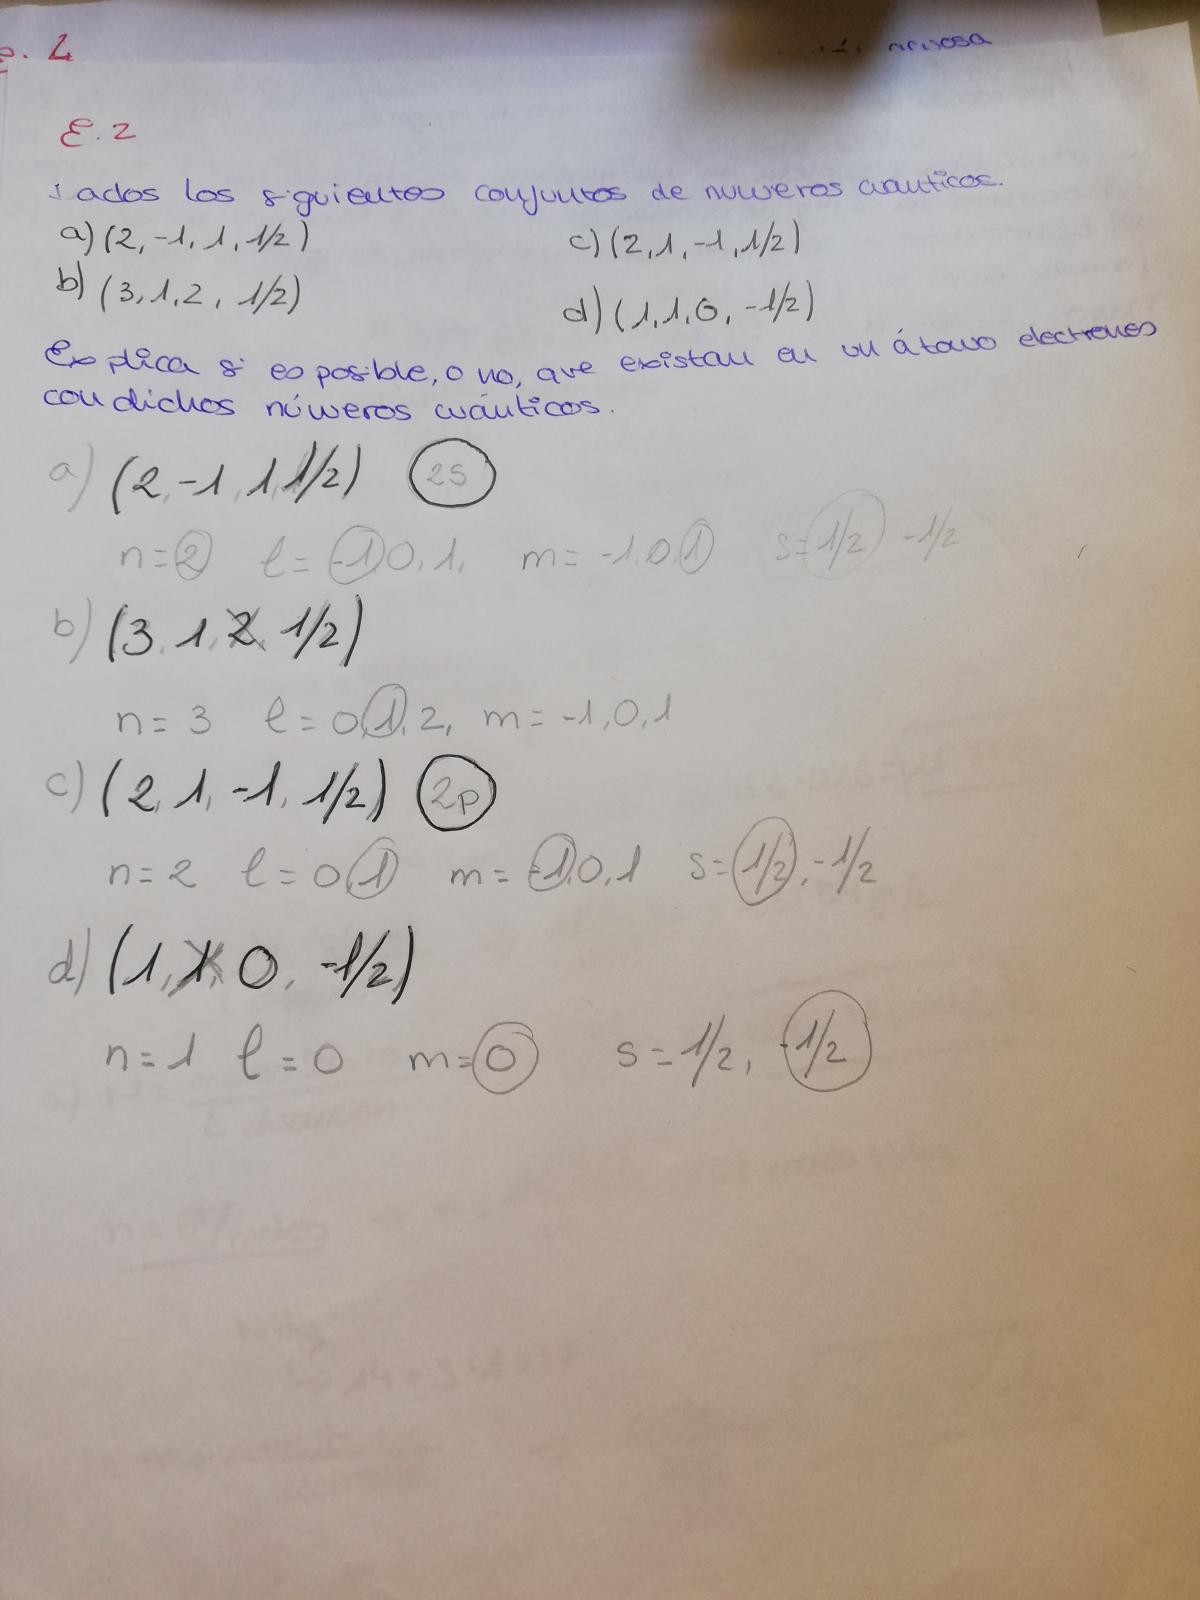 E. 2
ados los siguientes conjuntos de números cuánticos.
a) (2, -1, 1, 1/2) c) (2, 1, -1, 1/2)
b) (3, 1, 2, 1/2) d) (1, 1, 0, -1/2)
Explica si es posible, o no, que existan en un átomo electrones
con dichos números cuánticos.
a) (2, -1, 1, 1/2) 2s
n = 2 l = -1, 0, 1, m = -1, 0, 1 s = 1/2 -1/2
b) (3, 1, 2, 1/2)
n = 3 l = 0, 1, 2, m = -1, 0, 1
c) (2, 1, -1, 1/2) 2p
n = 2 l = 0, 1 m = -1, 0, 1 s = 1/2, -1/2
d) (1, 1, 0, -1/2)
n = 1 l = 0 m = 0 s = 1/2, -1/2